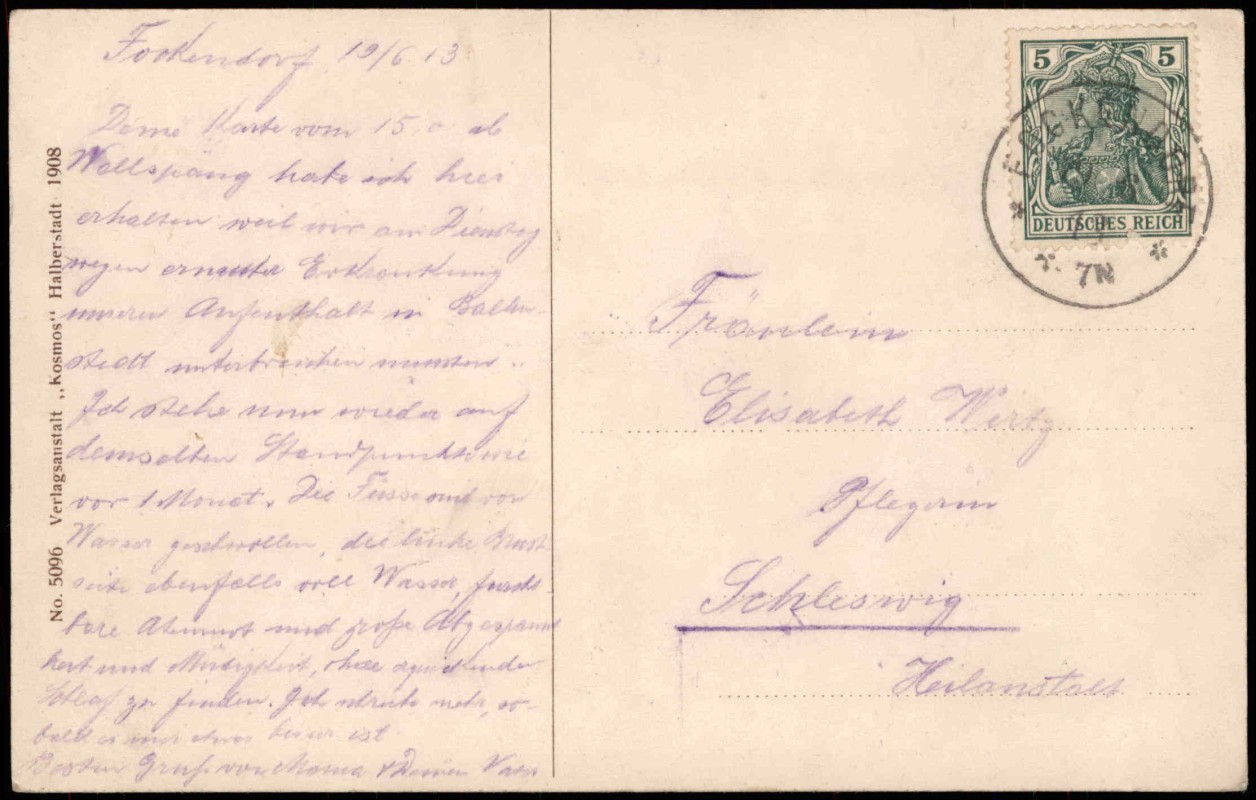 Fockendorf 19/6.13
Deine Karte vom 15. ab
Wallspang habe ich hier
erhalten weil wir am Dienstag
wegen erneuter Erkrankung
unseren Aufenthalt in Ballen-
stedt unterbrechen mussten.
Ich stehe nun wieder auf
demselben Standpunkt wie
vor 1 Monat. Die Füsse sind von
Wasser geschwollen, die linke Brust-
seite ebenfalls voll Wasser, furcht-
bare Atemnot und große Abgespannt
heit und Müdigkeit, ohne
Schlaf zu finden. Ich schreibe mehr, so-
bald es mir etwas besser ist
Besten Gruß von Mama & Deinem Vater
No. 5096 Verlagsanstalt „Kosmos“ Halberstadt 1908
5 5
DEUTSCHES REICH
7N
Fräulein
Elisabeth Wirtz
Pflegerin
Schleswig
Heilanstalt